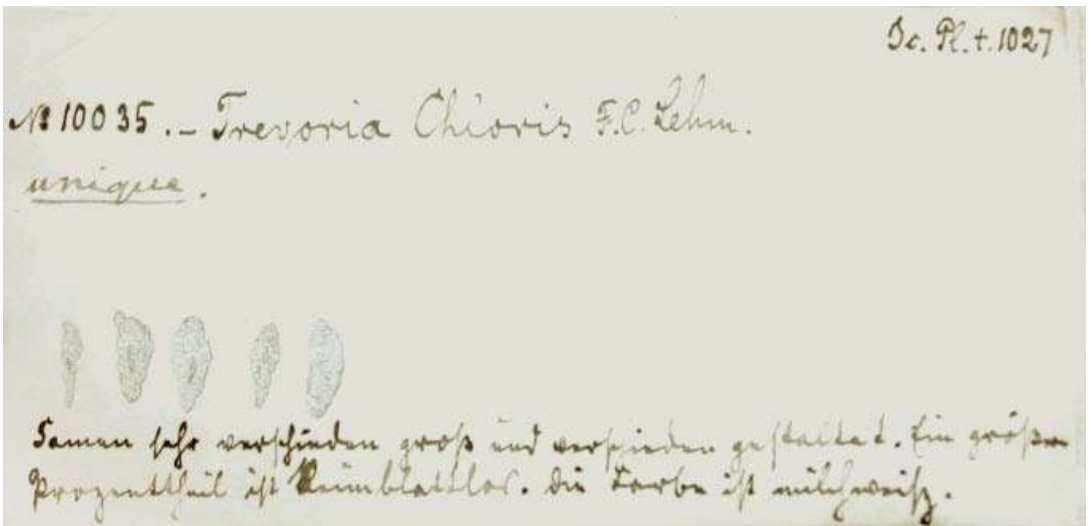 Ic. Pl. t. 1027
№ 10035. - Trevoria Chloris F.C. Lehm.
unique.
Samen sehr verschieden groß und verschieden gestaltet. Ein größer
Prozenttheil ist Keimblattlos. Die Farbe ist milchweiß.